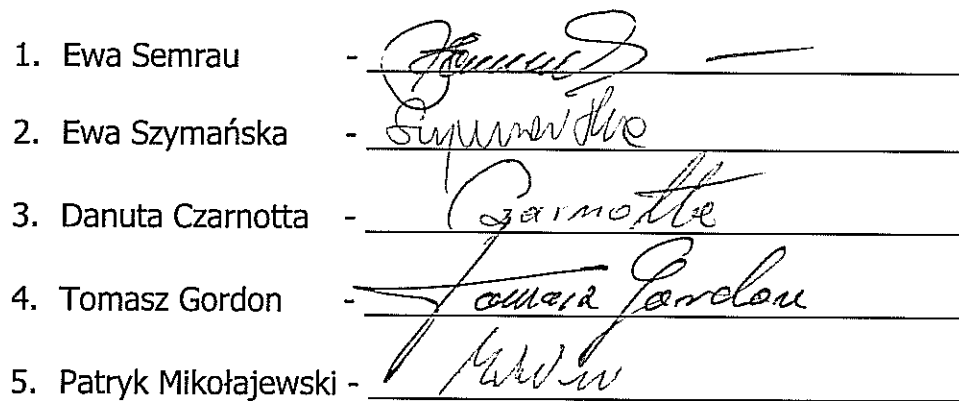 1. Ewa Semrau -
2. Ewa Szymańska - Szymańska
3. Danuta Czarnotta - Czarnotta
4. Tomasz Gordon - Tomasz Gordon
5. Patryk Mikołajewski -